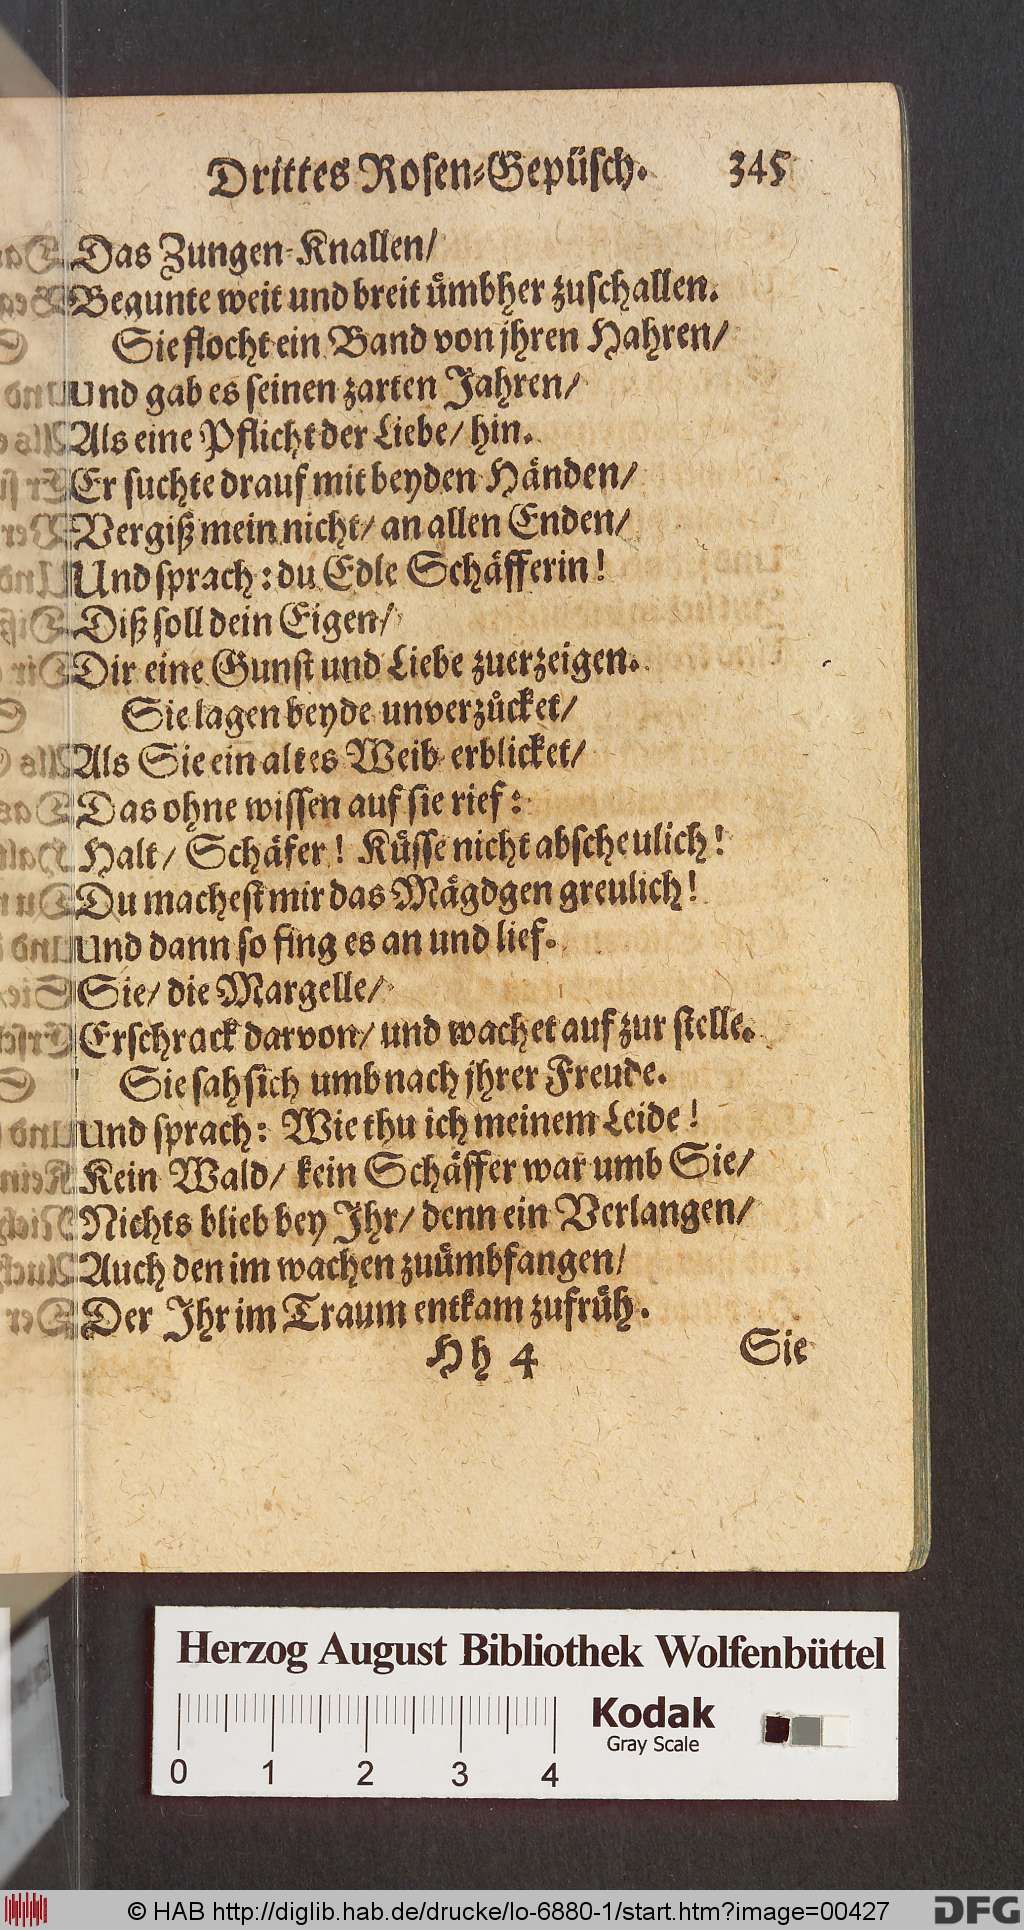 Drittes Rosen-Gepüsch. 345
Das Zungen-Knallen/
Begunte weit und breit ümbher zuschallen.
Sie flocht ein Band von jhren Hahren/
Und gab es seinen zarten Jahren/
Als eine Pflicht der Liebe/ hin.
Er suchte drauf mit beyden Händen/
Vergiß mein nicht/ an allen Enden/
Und sprach: du Edle Schäfferin!
Diß soll dein Eigen/
Dir eine Gunst und Liebe zuerzeigen.
Sie lagen beyde unverzücket/
Als Sie ein altes Weib erblicket/
Das ohne wissen auf sie rief:
Halt/ Schäfer! Küsse nicht abscheulich!
Du machest mir das Mägdgen greulich!
Und dann so fing es an und lief.
Sie/ die Margelle/
Erschrack darvon/ und wachet auf zur stelle.
Sie sah sich umb nach jhrer Freude.
Und sprach: Wie thu ich meinem Leide!
Kein Wald/ kein Schäffer war umb Sie/
Nichts blieb bey Jhr/ denn ein Verlangen/
Auch den im wachen zuümbfangen/
Der Jhr im Traum entkam zufrüh.
Hh 4 Sie
Herzog August Bibliothek Wolfenbüttel
Kodak
Gray Scale
0 1 2 3 4
© HAB http://diglib.hab.de/drucke/lo-6880-1/start.htm?image=00427
DFG